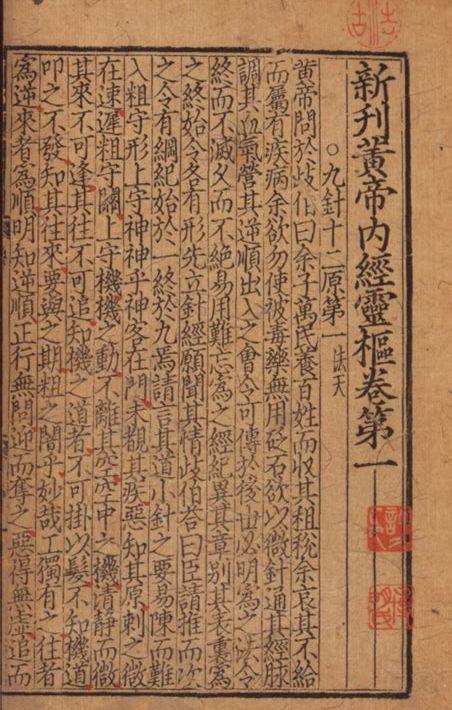 新刊黃帝內經靈樞卷第一
○九針十二原第一 法天
黃帝問於歧伯曰余子萬民養百姓而收其租稅余哀其不給
而屬有疾病余欲勿使被毒藥無用砭石欲以微針通其經脈
調其血氣營其逆順出入之會令可傳於後世必明為之法令
終而不滅久而不絕易用難忘為之經紀異其章別其表裏為
之終始令各有形先立針經願聞其情歧伯答曰臣請推而次
之令有綱紀始於一終於九焉請言其道小針之要易陳而難
入粗守形上守神神乎神客在門未覩其疾惡知其原刺之微
在速遲粗守關上守機機之動不離其空空中之機清靜而微
其來不可逢其往不可追知機之道者不可掛以髮不知機道
叩之不發知其往來要與之期粗之闇乎妙哉工獨有之往者
為逆來者為順明知逆順正行無問迎而奪之惡得無虛追而